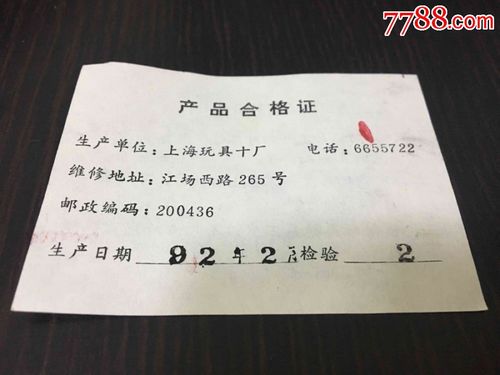 7788.com
产品合格证
生产单位: 上海玩具十厂 电话: 6655722
维修地址: 江场西路265号
邮政编码: 200436
生产日期 92年2月 检验 2